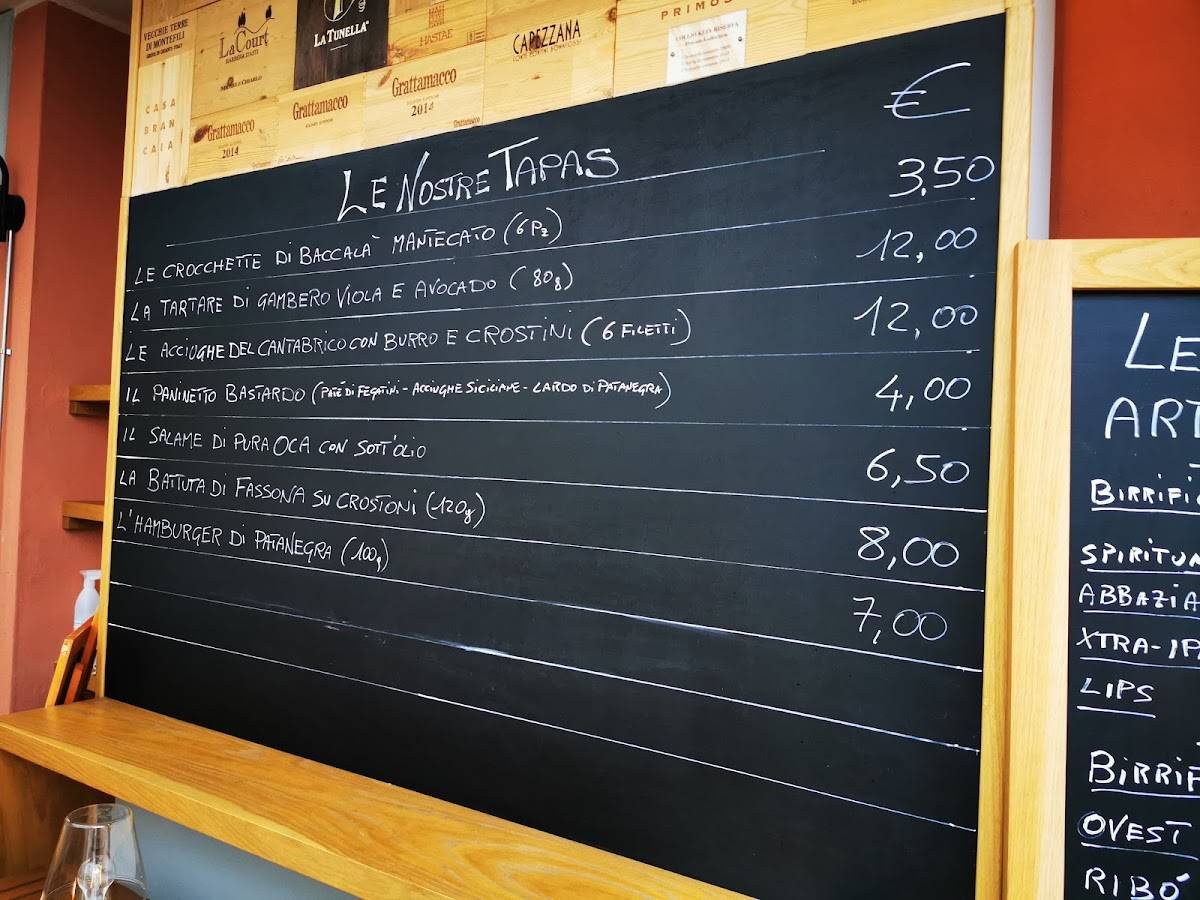 VECCHIE TERRE
DI MONTEFILI
LaCourt
MICHELE CHIARLO
LA TUNELLA
HASTAE
CAPEZZANA
PRIMOS
CASA
BRAN
CAIA
Grattamacco
2014
Grattamacco
Grattamacco
2014
Grattamacco
€
LE NOSTRE TAPAS
LE CROCCHETTE Di BACCALA' MANTECATO (6 Pz) 3,50
LA TARTARE DI GAMBERO VIOLA E AVOCADO (80g) 12,00
LE ACCIUGHE DEL CANTABRICO CON BURRO E CROSTINI (6 FILETTI) 12,00
IL PANINETTO BASTARDO (PATÈ DI FEGATINI - ACCIUGHE SICILIANE - LARDO DI PATANEGRA) 4,00
IL SALAME DI PURA OCA CON SOTT'OLIO 6,50
LA BATTUTA DI FASSONA SU CROSTONI (120g) 8,00
L'HAMBURGER DI PATANEGRA (100g) 7,00
LE
ART
BIRRIFI
SPIRITUM
ABBAZIA
XTRA-IPA
LIPS
BIRRIF
OVEST
RIBÓ